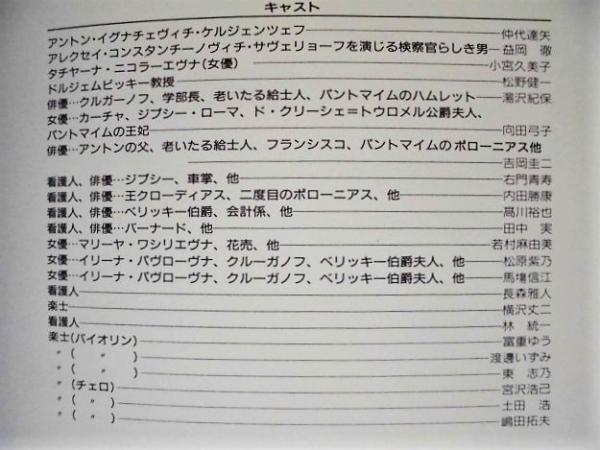 キャスト
アントン・イグナチェヴィチ・ケルジェンツェフ 仲代達矢
アレクセイ・コンスタンチーノヴィチ・サヴェリョーフを演じる検察官らしき男 益岡 徹
タチヤーナ・ニコラーエヴナ(女優) 小宮久美子
ドルジェムビッキー教授 松野健一
俳優…クルガーノフ、学部長、老いたる給士人、パントマイムのハムレット 湯沢紀保
女優…カーチャ、ジプシー・ローマ、ド・クリーシェ=トウロメル公爵夫人、
パントマイムの王妃 向田弓子
俳優…アントンの父、老いたる給士人、フランシスコ、パントマイムのポローニアス他
吉岡圭二
看護人、俳優…ジプシー、車掌、他 右門青寿
看護人、俳優…王クローディアス、二度目のポローニアス、他 内田勝康
看護人、俳優…ベリッキー伯爵、会計係、他 高川裕也
看護人、俳優…バーナード、他 田中 実
女優…マリーヤ・ワシリエヴナ、花売、他 若村麻由美
女優…イリーナ・パヴローヴナ、クルーガノフ、ベリッキー伯爵夫人、他 松原紫乃
女優…イリーナ・パヴローヴナ、クルーガノフ、ベリッキー伯爵夫人、他 馬場信江
看護人 長森雅人
楽士 横沢丈二
看護人 林 統一
楽士(バイオリン) 富重ゆう
〃 ( 〃 ) 渡邊いずみ
〃 ( 〃 ) 東 志乃
〃 (チェロ) 宮沢浩己
〃 ( 〃 ) 土田 浩
〃 ( 〃 ) 嶋田拓夫